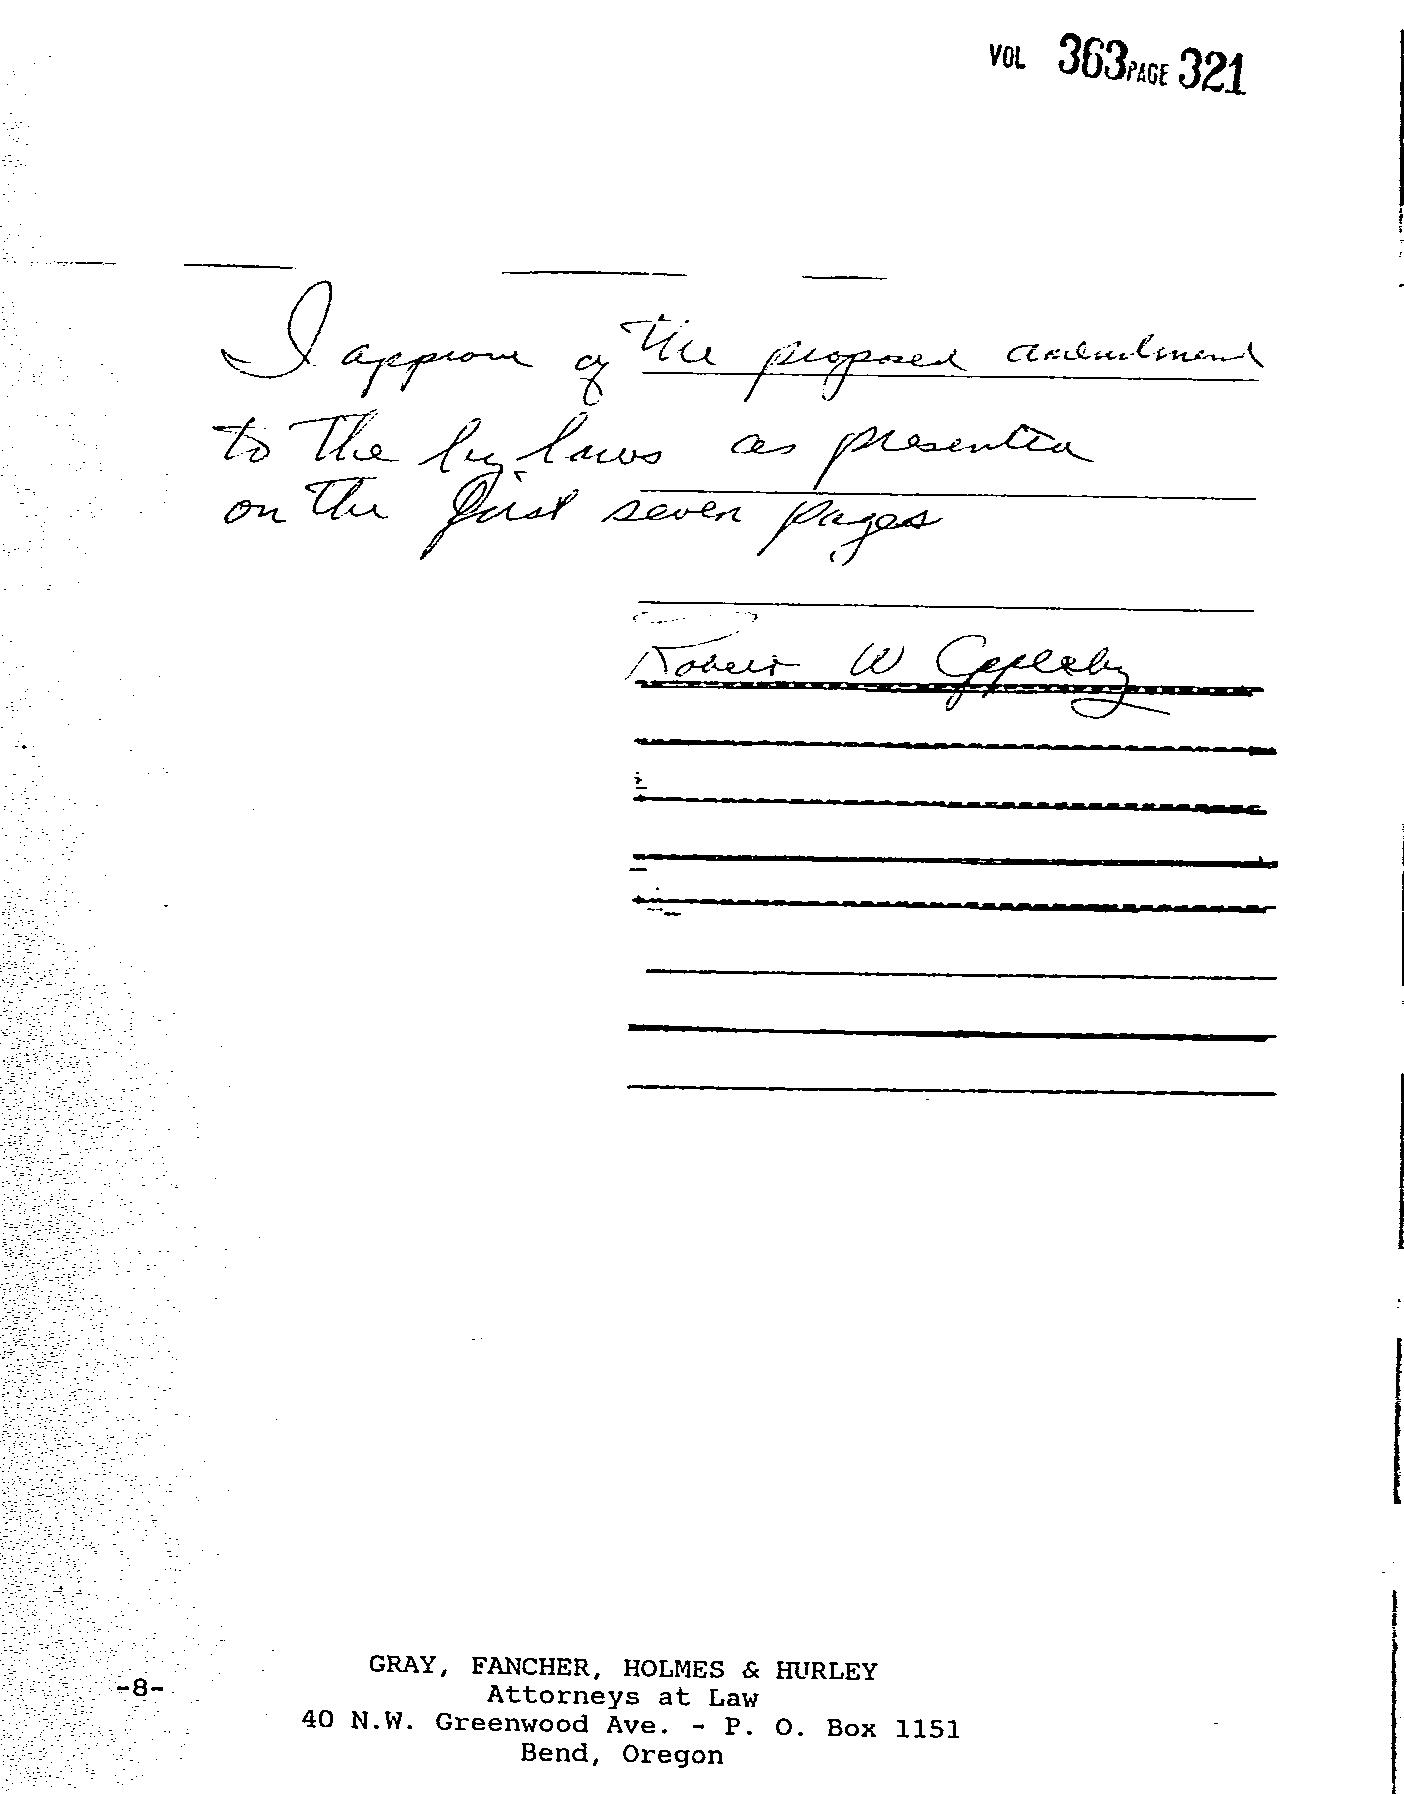 VOL 363 PAGE 321
I approve of the proposed amendment
to the by laws as presented
on the first seven pages
Robert W Appleby
GRAY, FANCHER, HOLMES & HURLEY
-8-
Attorneys at Law
40 N.W. Greenwood Ave. - P. O. Box 1151
Bend, Oregon